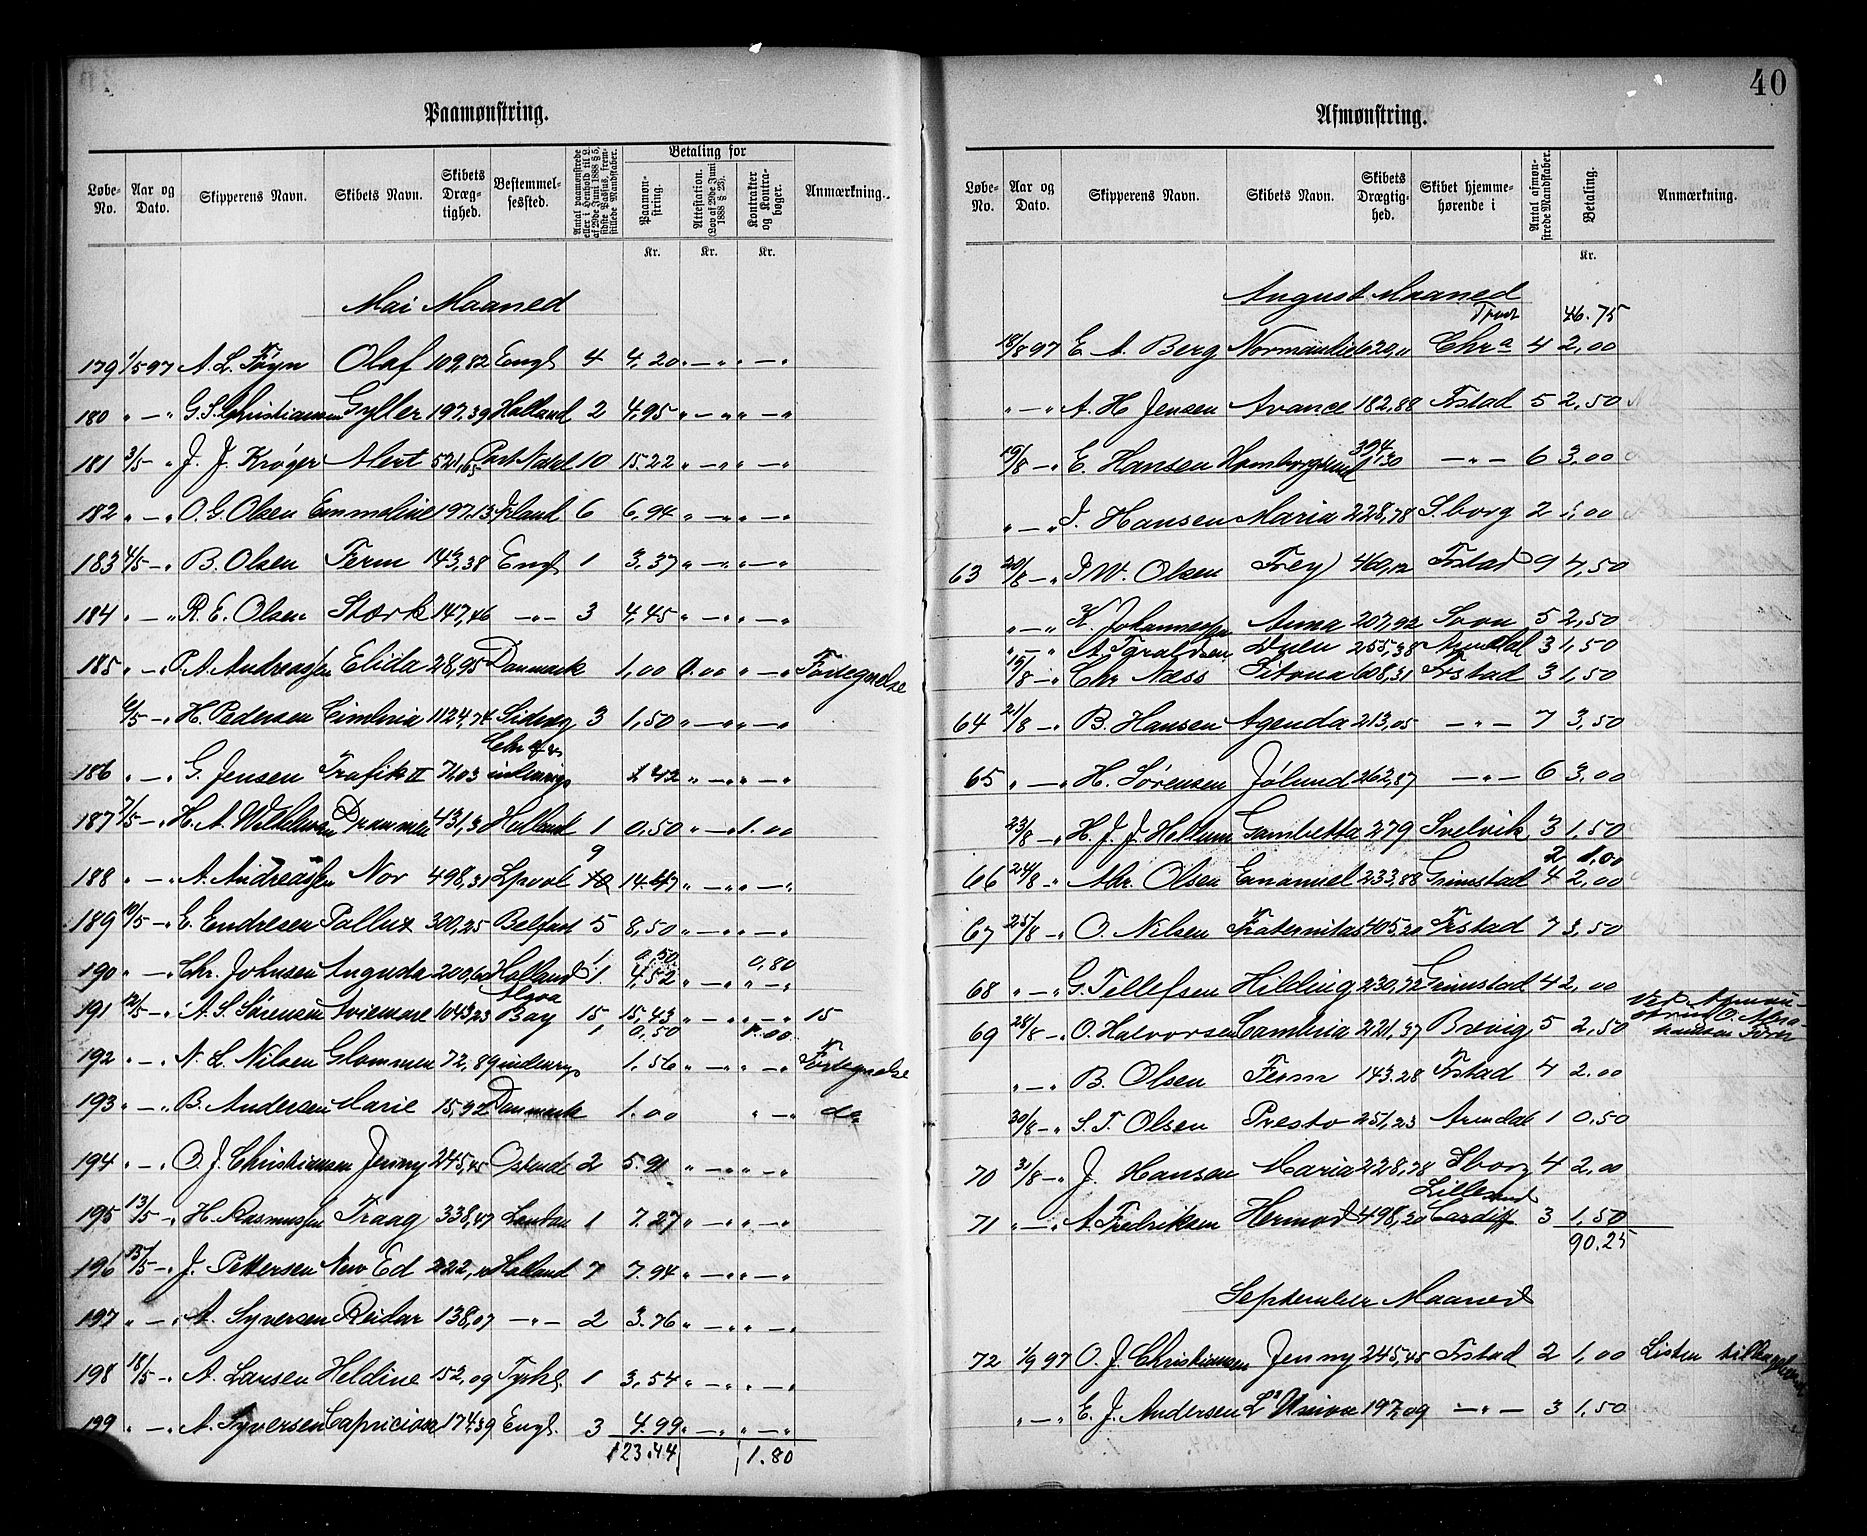 Paamønstring.
Løbe-No. Aar og Dato. Skipperens Navn. Skibets Navn. Skibets Dræg-tighed. Bestemmel-sessted. Betaling for Paamøn-string. Attestation. (Lov af 29de Juni 1888 § 23). Kontrakter og Kontra-bøger. Anmærkning.
Kr. Kr. Kr.
Mai Maaned
179 1/5 97 A. L. Føyn Olaf 109,82 Engl 4 4,20 " — " " — "
180 " — " G. S. Christiansen Gyller 197,39 Holland 2 4,95 " — " " — "
181 3/5 — " J. J. Krøger Alert 521,65 Port Natal 10 15.22 " — " " — "
182 " — " O. G. Olsen Emmeline 197,13 Irland 6 6,94 " — " " — "
183 4/5 — " B. Olsen Ferm 143,38 Engl 1 3,37 " — " " — "
184 " — " R. E. Olsen Stærk 147,46 — " — 3 4,45 " — " " — "
185 " — " P. A. Andreassen Elida 28,95 Danmark 1,00 0.00 " — " Fortegnelse
6/5 — " H. Pedersen Cimbria 1124,74 3 1,50 " — " " — "
186 " — " G. Jensen Trafik II 71,03 indenrigs 1 42 " — " " — "
187 7/5 — " H. A. Wilhelmsen Drammen 431,31 Holland 1 0.50 " — " 1.00
9
188 " — " A. Andreassen Nor 498,31 Lpool 10 14.47 " — " " — "
189 10/5 — " E. Endresen Pollux 300,25 Belfast 5 8,50 " — " " — "
1 0,50 0,80
190 " — " Chr. Johnsen Augusta 200,60 Holland 1 4,52 " — " " — "
Algoa
191 12/5 — " A. S. Sørensen 1043,23 Bay 15 15,43 " — " " — " 15
1 0,50 1.00
192 " — " N. L. Nilsen Glommen 72,89 indenrgs 1,56 " — " " — " Fortegnelse
193 " — " B. Andersen Marie 15,92 Danmark 1.00 " — " do
194 " — " O. J. Christiansen Jenny 245,45 Ostende 2 5.91 " — " " — "
195 13/5 — " H. Rasmussen Traag 338,47 London 1 7.27 " — " " — "
196 15/5 — " J. Pettersen New Ed 222, Holland 7 7.94 " — " " — "
197 " — " A. Syversen Reidar 138,07 — " — 2 3.76 " — " " — "
198 18/5 — " A. Larsen Heldine 152,09 Tyskl. 1 3,54 " — " " — "
199 " — " A. Syversen Capriciosa 174,39 Engl. 3 4.99 " — " " — "
123.44 1.80
40
Afmønstring.
Løbe-No. Aar og Dato. Skipperens Navn. Skibets Navn. Skibets Drægtig-hed. Skibet hjemme-hørende i Antal afmøn-strede Mandskaber. Betaling. Anmærkning.
Kr.
August Maaned
46.75
18/8 97 E. A. Berg Normandie 620,11 Chra 4 2,00
" — " A. H. Jensen Avance 182,88 Frstad 5 2,50
19/8 — " E. Hansen Homborgsund 304,30 — " — 6 3,00
" — " J. Hansen Maria 228,78 S.borg 2 1,00
63 20/8 — " J. W. Olsen Frey 460,12 Frstad 9 4,50
" — " K. Johannessen Anna 207,92 5 2,50
" — " A. Taraldsen 255,38 Arendal 3 1,50
19/8 — " Chr Næss Sitona 608,31 Frstad 3 1,50
64 21/8 — " B. Hansen Agenda 213,05 — " — 7 3,50
65 " — " H. Sørensen Jølund 262,87 — " — 6 3,00
23/8 — " H. J. J. Gambetta 279 Svelvik 3 1,50
2 1.00
66 24/8 — " Abr. Olsen Emanuel 233,88 Grimstad 4 2,00
67 25/8 — " O. Nilsen Fraternitas 405,20 Frstad 7 3,50
68 " — " G. Tellefsen Hilding 230,72 Grimstad 4 2,00
69 28/8 — " O. Halvorsen Cambria 221,37 Brevig 5 2,50
" — " B. Olsen Ferm 143.28 Frstad 4 2.00
30/8 — " S. T. Olsen Presto 251,23 Arendal 1 0.50
70 31/8 — " J. Hansen Maria 228,78 Sborg 4 2,00
Lillesand
71 " — " A. Fredriksen Hermod 498,20 Cardiff 3 1,50
90.25
September Maaned
72 1/9 97 O. J. Christiansen Jenny 245,45 Frstad 2 1,00 Listen
" — " E. J. Andersen L'Union 197,09 — " — 3 1,50